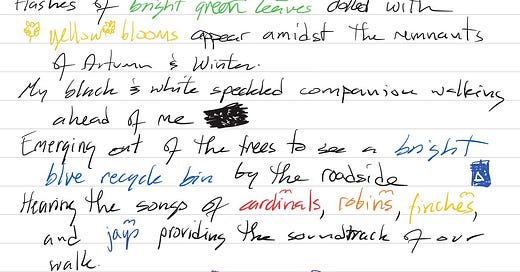 Flashes of bright green leaves dotted with
yellow blooms appear amidst the remnants
of Autumn & Winter.
My black & white speckled companion walking
ahead of me
Emerging out of the trees to see a bright
blue recycle bin by the roadside
Hearing the songs of cardinals, robins, finches,
and jays providing the soundtrack of our
walk.